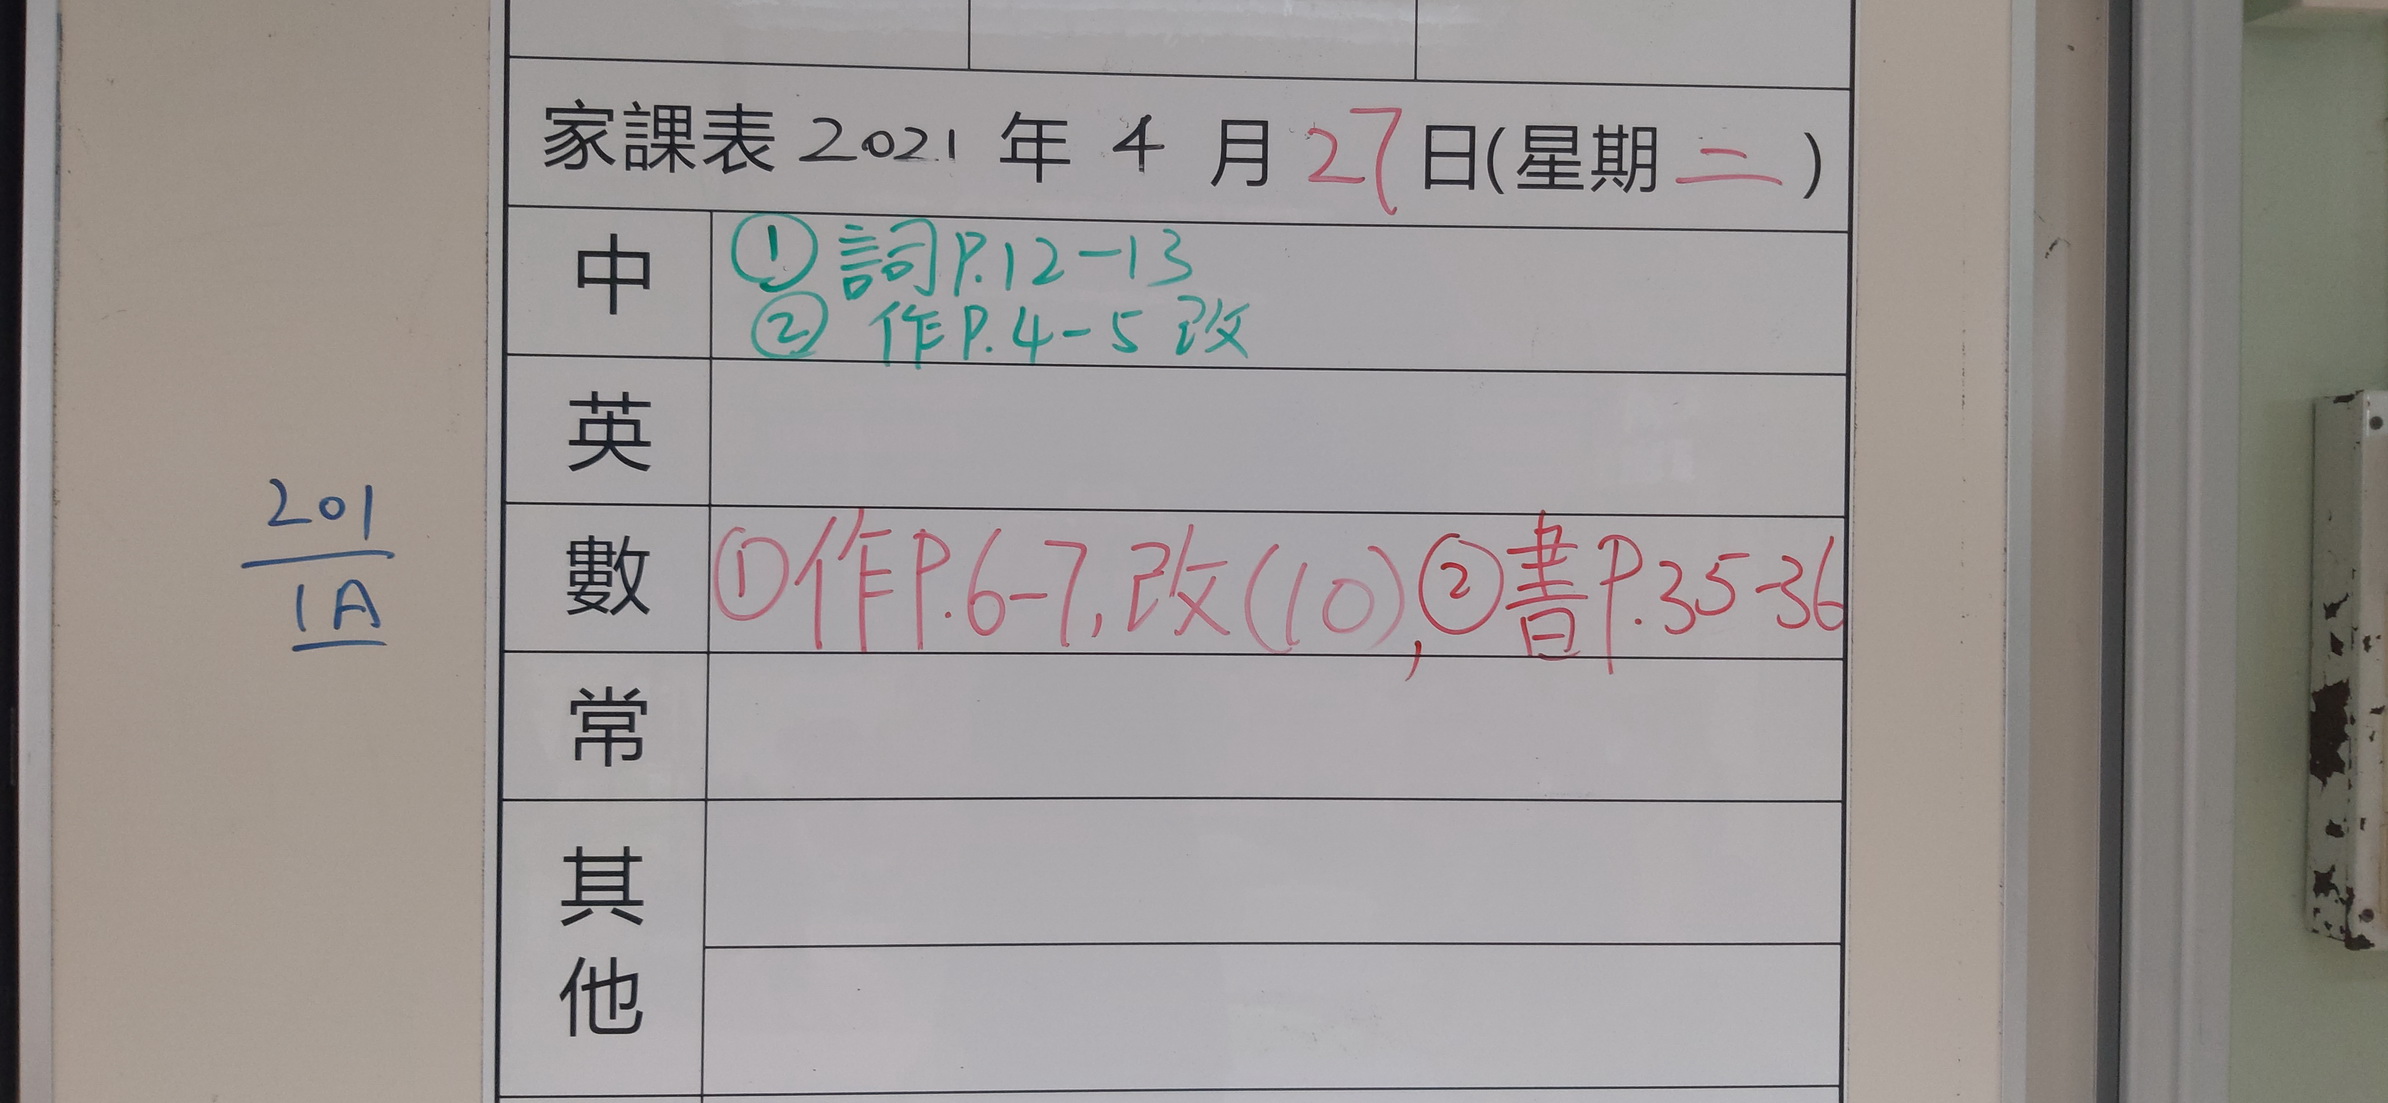 家課表 2021 年 4 月 27 日(星期 二 )
中
① 詞 P.12-13
② 作 P.4-5 改
英
201
1A
數
①作P.6-7,改(10),②書P.35-36
常
其
他